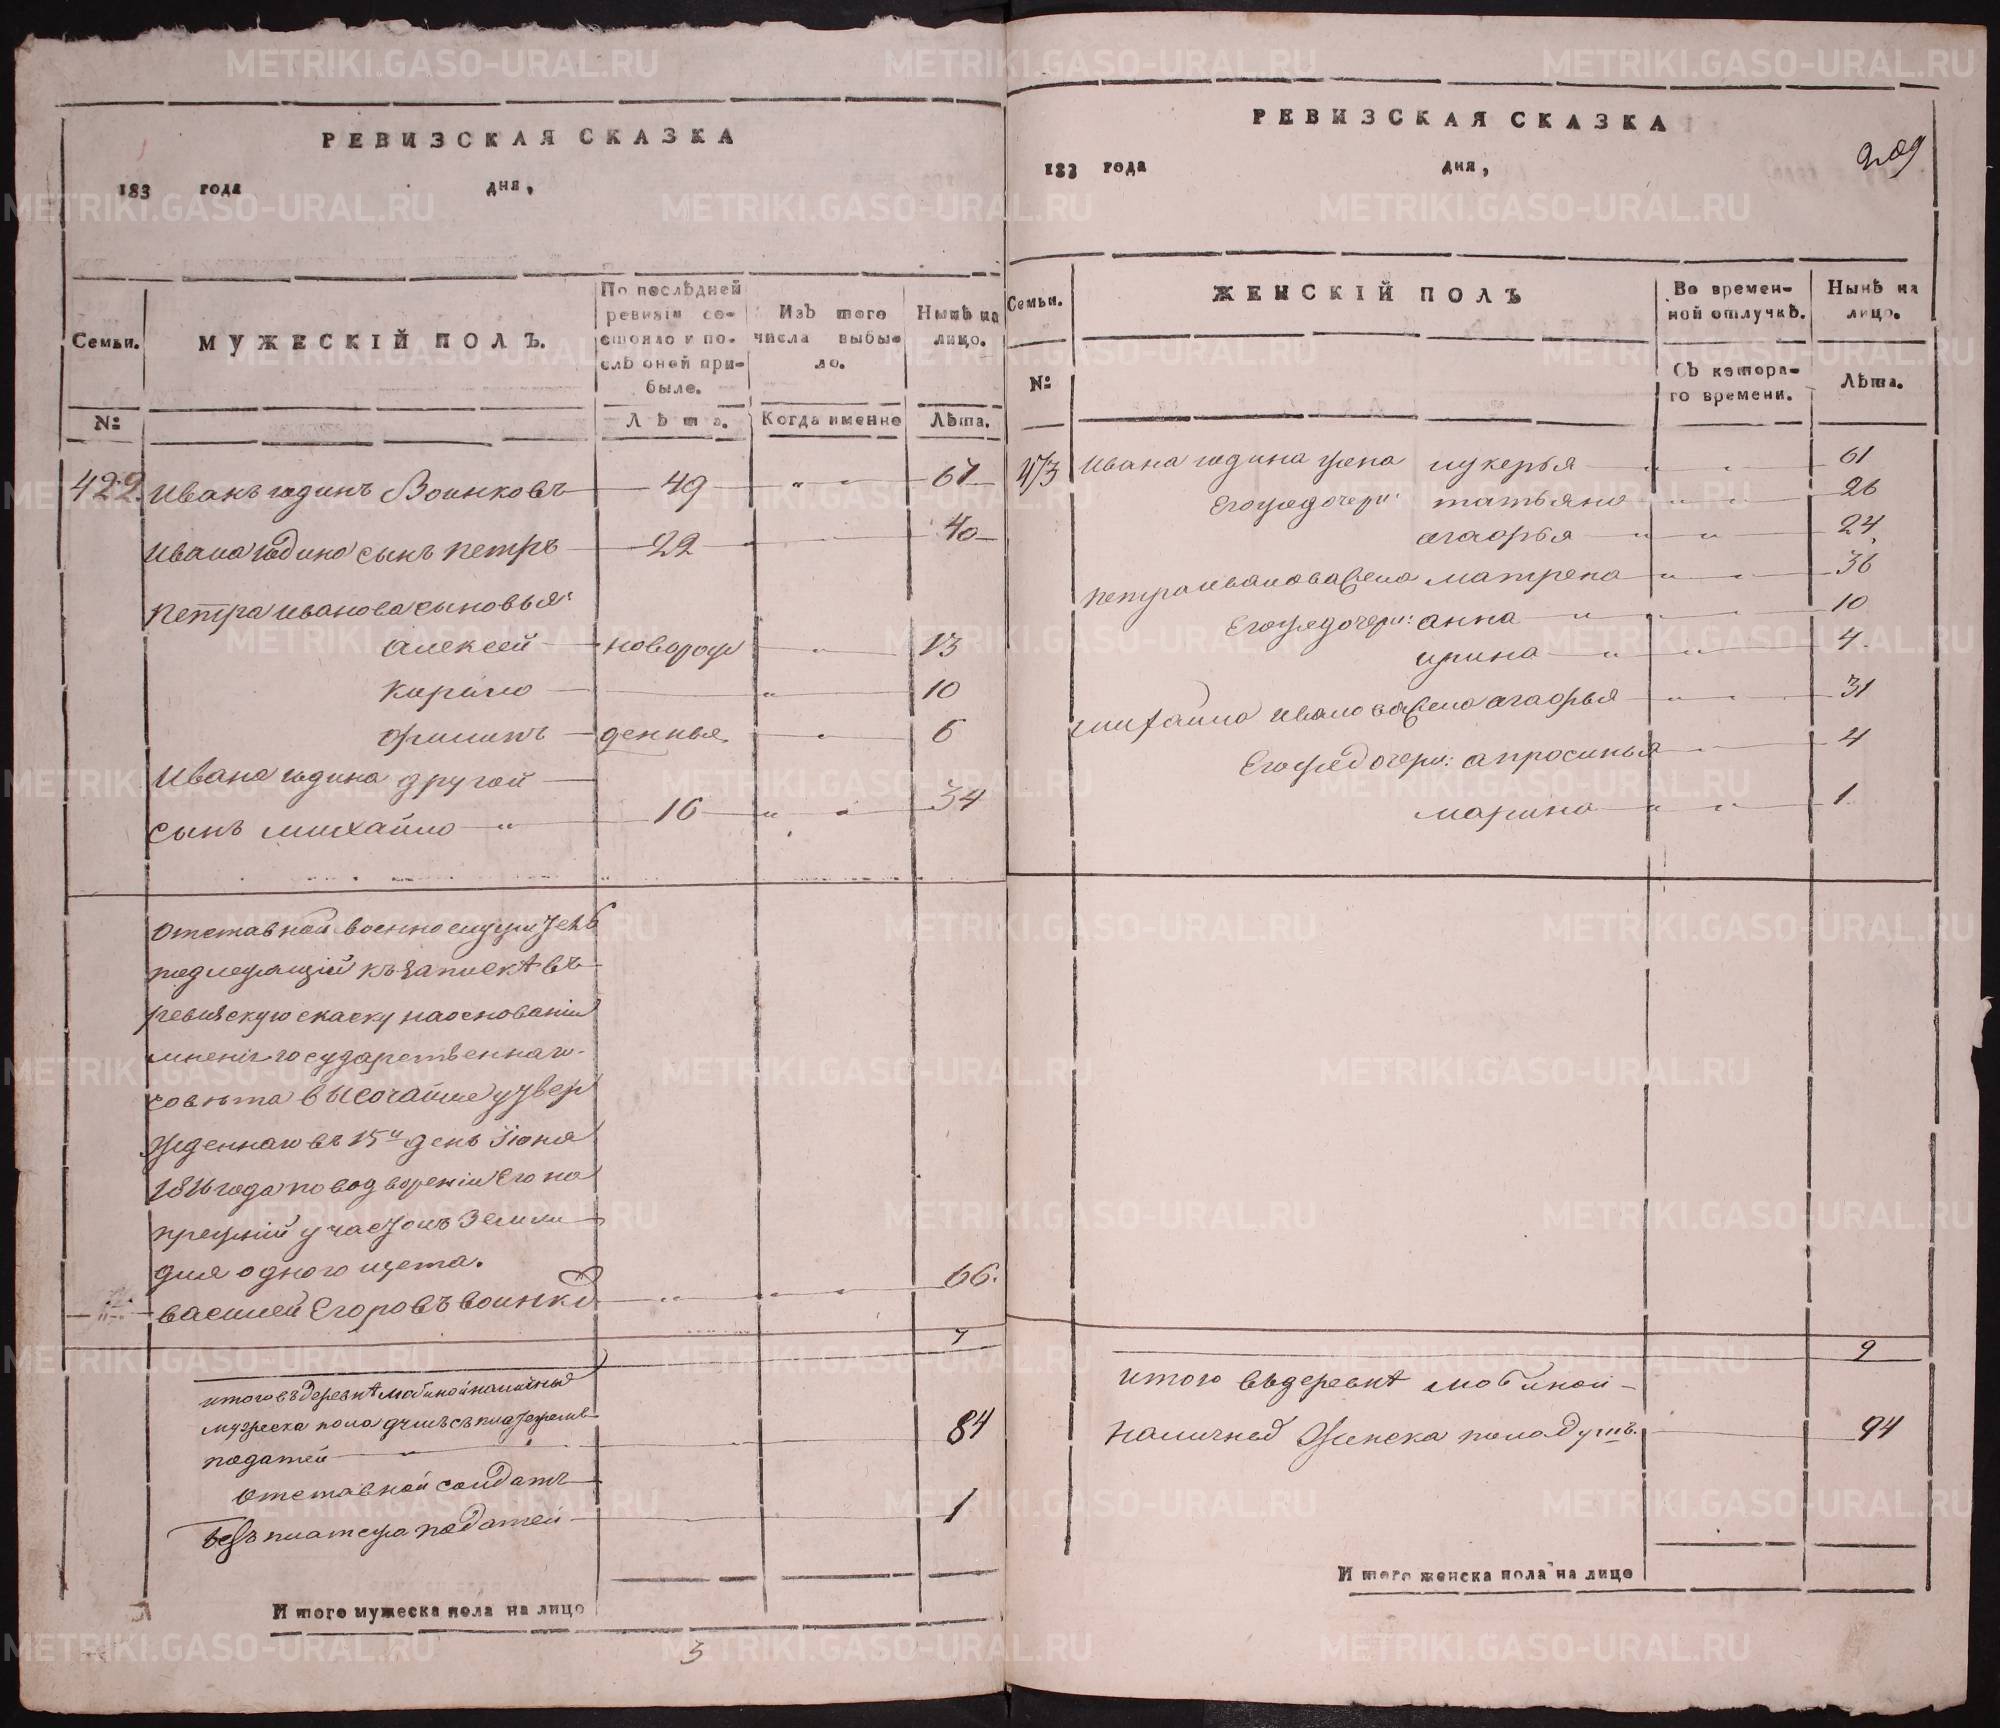 РЕВИЗСКАЯ СКАЗКА
183 года дня,
Семьи.
№
МУЖЕСКІЙ ПОЛЪ.
По послѣдней ревизіи состояло и послѣ оной прибыло.
Лѣта.
Изъ того числа выбыло.
Когда именно
Нынѣ на лицо.
Лѣта.
422. Иванъ юдинъ Воинковъ 49 " " 61
Ивана юдина сынъ петръ 22 40
петра иванова сыновья:
алексей новорож " 13
кирило " 10
филипъ денныя " 6
Ивана юдина другой
сынъ михайло " 16 " " 34
отставной военнослужитель
подлежащій къ запискѣ въ
ревизскую скаску наосновании
мнения государственнаго
совѣта высочайше утвер
жденнаго въ 15й день Июня
1816 года по водворении его на
прежній участокъ земли
для одного щета.
василей Егоровъ воинко " " " 66.
7
итого въ деревнѣ наличныя
мужеска пола душъ съ платежемъ
податей " 84
отставной солдатъ
безъ платежа податей 1
Итого мужеска пола на лицо
3
РЕВИЗСКАЯ СКАЗКА
183 года дня,
209
Семьи.
№
ЖЕНСКІЙ ПОЛЪ
Во временной отлучкѣ.
Съ котораго времени.
Нынѣ на лицо.
Лѣта.
Ивана юдина жена лукерья " " 61
Егожъ дочери: татьяна " " 26
агафья " " 24.
петра иванова жена матрена " " 36
Егожъ дочери: анна " " 10
ирина " " 4.
михайла иванова жена агафья " " 31
Егожъ дочери: апросинья " 4
марина " " 1
9
итого въ деревнѣ
наличнаго женска пола душъ. 94
Итого женска пола на лицо
METRIKI.GASO-URAL.RU